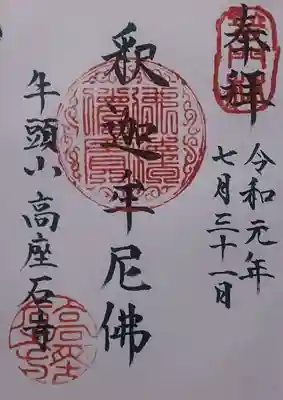 奉拝
令和元年
七月三十一日
釈迦牟尼佛
牛頭山高座石寺